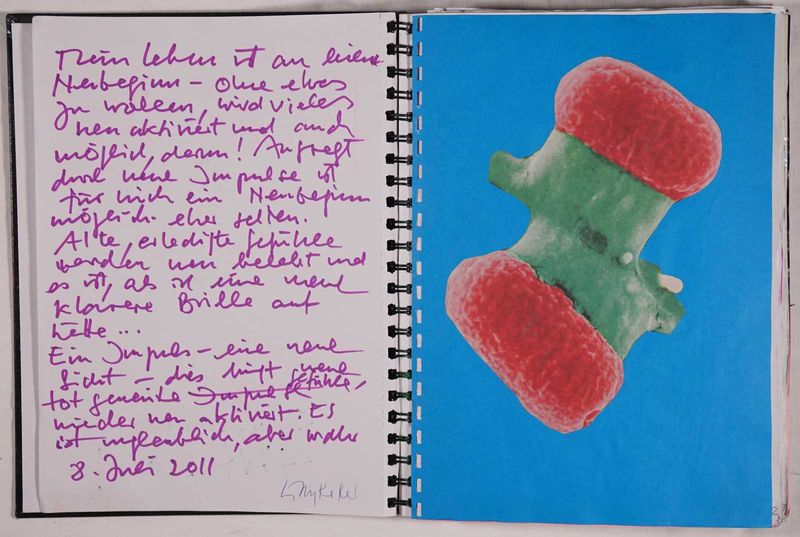 Mein Leben ist an einem
Neubeginn – ohne etwas
zu wollen, wird vieles
neu aktiviert und auch
möglich, darin! Angeregt
durch neue Impulse ist
für mich ein Neubeginn
möglich eher selten.
Alte, erledigte Gefühle
werden neu belebt und
es ist, als ob ich eine neue
klarere Brille auf
hätte...
Ein Impuls – eine neue
Sicht – dies bringt neue
tot gemeinte Impulse Gefühle,
wieder neu aktiviert. Es
ist unglaublich, aber wahr
8. Juli 2011